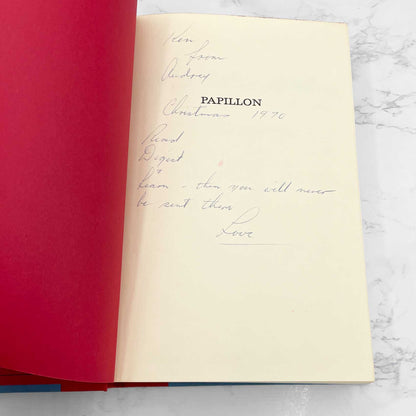 Ken
from
Audrey
PAPILLON
Christmas 1970
Read
Digest
&
Learn - then you will never
be sent there
Love